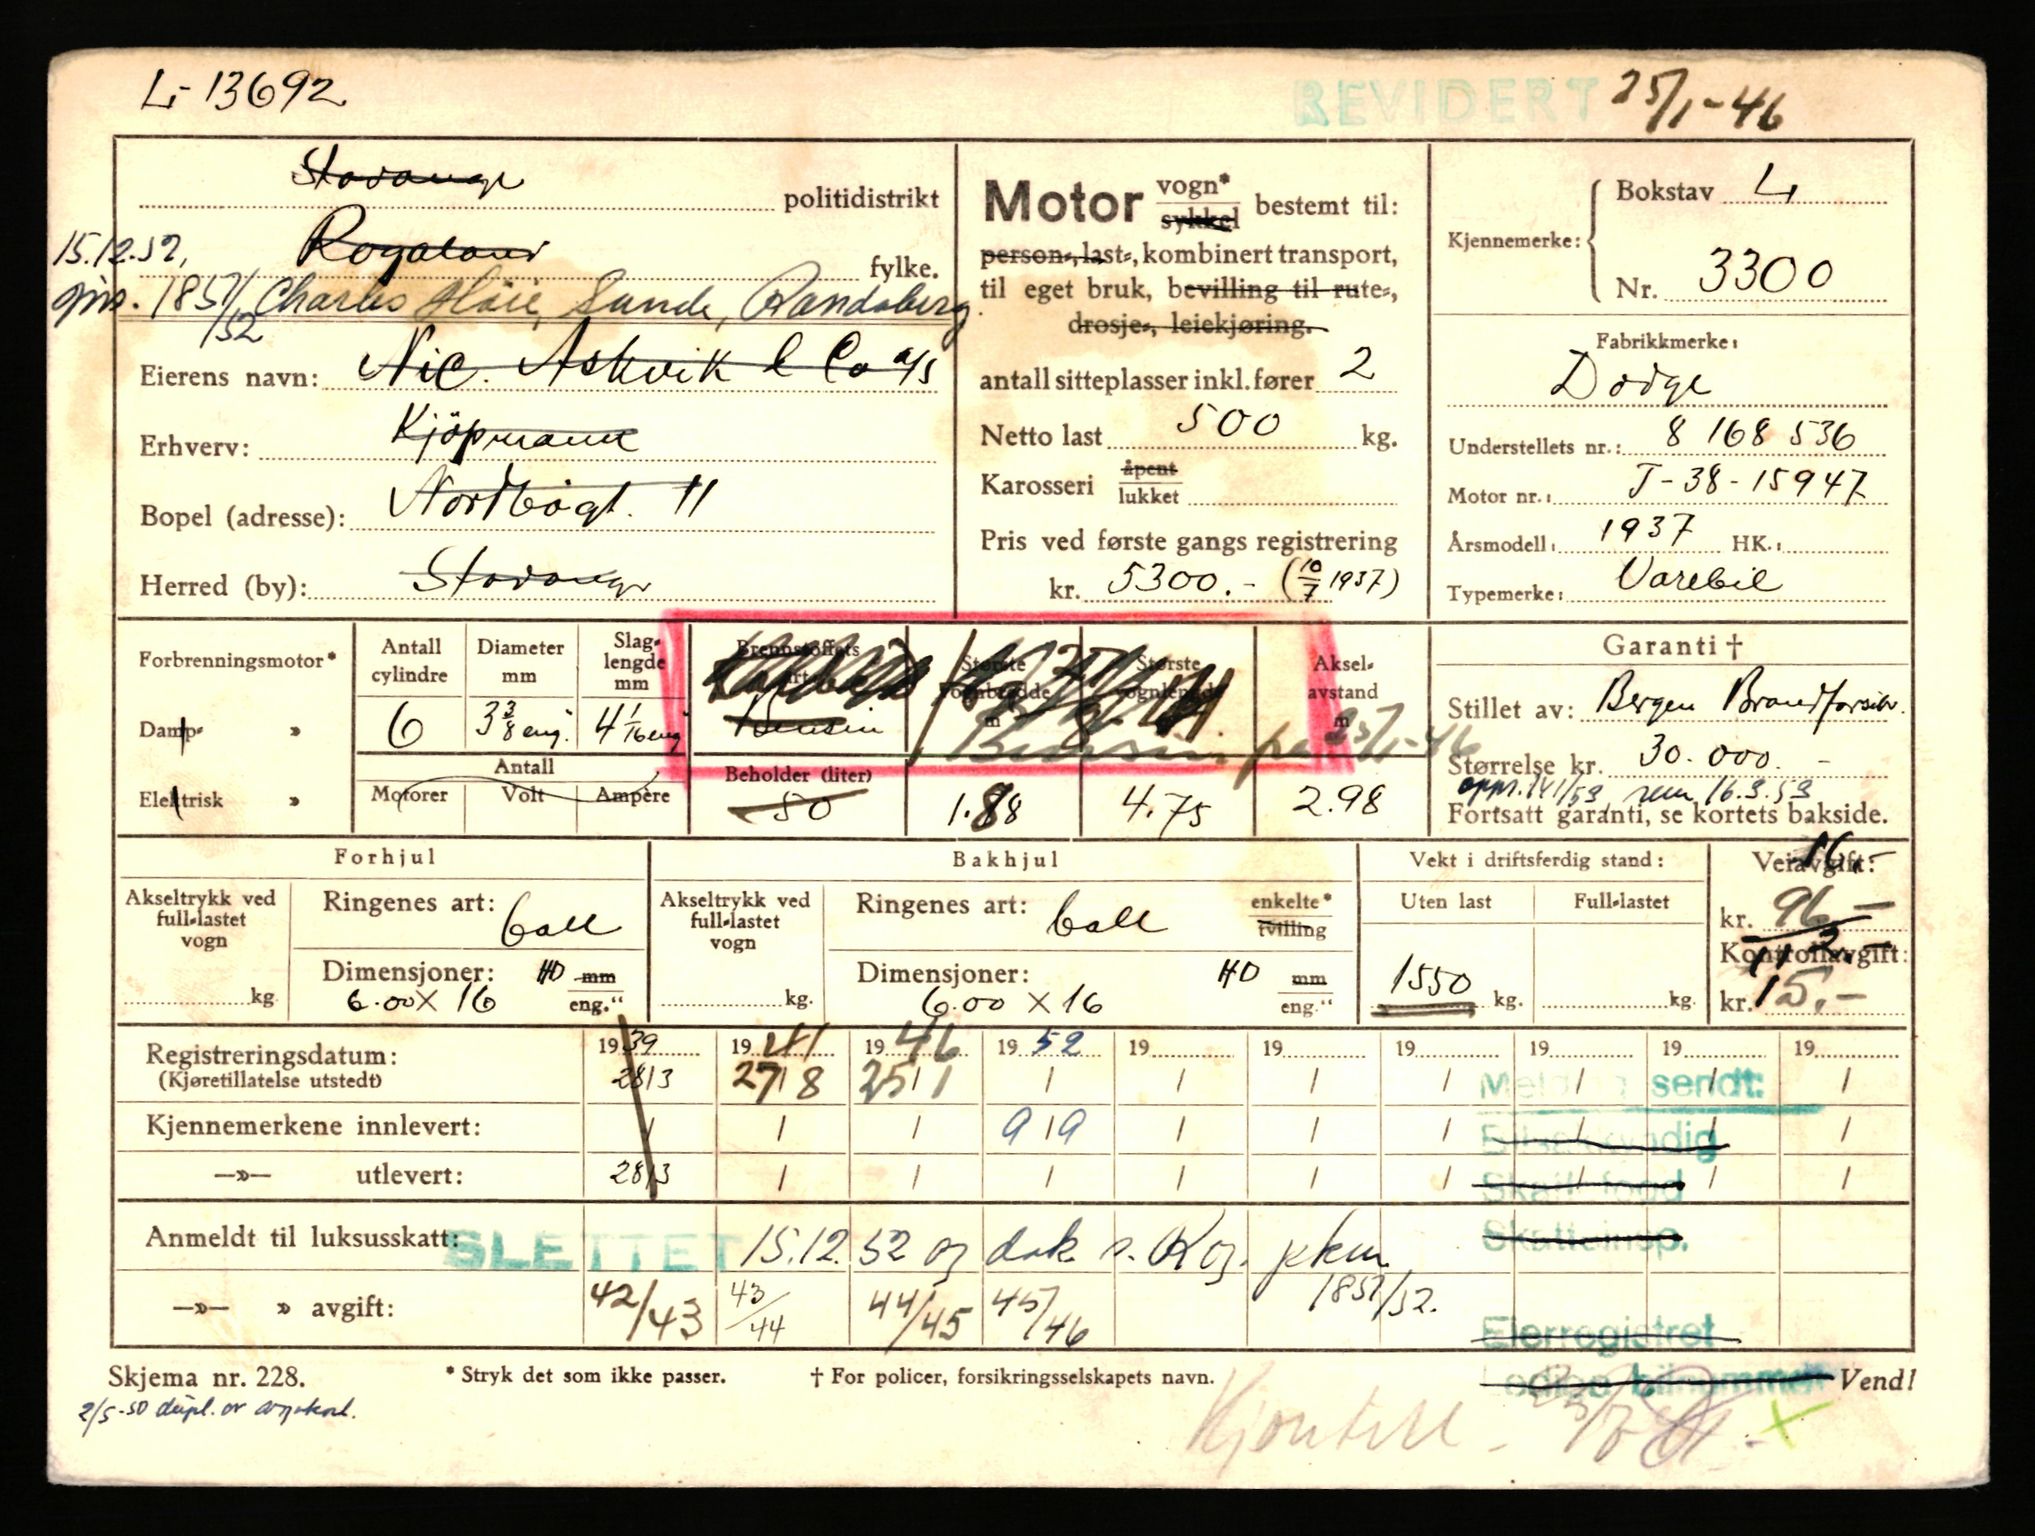 L-13692
REVIDERT 25/1-46
Stavanger politidistrikt
15.12.52, Rogaland fylke.
gjns. 1857/52 Charles Høie, Sunde, Randaberg
Eierens navn: Nic. Askvik & Co a/s
Erhverv: Kjöpmann
Bopel (adresse): Nordbögt. 11
Herred (by): Stavanger
Motor vogn* sykkel bestemt til:
person-, last-, kombinert transport,
til eget bruk, bevilling til rute-,
drosje-, leiekjøring.
antall sitteplasser inkl. fører 2
Netto last 500 kg.
Karosseri åpent lukket
Pris ved første gangs registrering
kr. 5300.- (10/7 1937)
Kjennemerke: Bokstav L
Nr. 3300
Fabrikkmerke:
Dodge
Understellets nr.: 8 168 536
Motor nr.: T-38-15947
Årsmodell: 1937 HK.:
Typemerke: Varebil
Forbrenningsmotor*
Damp- »
Elektrisk »
Antall cylindre 6
Diameter mm 3 3/8 eng.
Slag-lengde mm 4 1/16 eng
Antall
Motorer Volt Ampère
Brennstoffets art
Bensin
Største vognbredde m
Største vognlengde
Aksel-avstand m
Bensin på 25/1-46
Beholder (liter) 50
1.88 4.75 2.98
Garanti †
Stillet av: Bergen Brandforsikr.
Størrelse kr. 30.000.-
opps. 141/53 rem 16.3.53
Fortsatt garanti, se kortets bakside.
Forhjul
Akseltrykk ved full-lastet vogn
kg.
Ringenes art: ball
Dimensjoner: HD mm
6.00 x 16 eng."
Bakhjul
Akseltrykk ved full-lastet vogn
kg.
Ringenes art: ball enkelte* tvilling
Dimensjoner: HD mm
6.00 x 16 eng."
Vekt i driftsferdig stand:
Uten last Full-lastet
1550 kg. kg.
Veiavgift: 16,-
kr. 96.-
112.-
Kontrollavgift:
kr. 15.-
Registreringsdatum: 1939 1941 1946 1952 19 19 19 19 19 19
(Kjøretillatelse utstedt) 28/3 27/8 25/1 / / / / / / /
Kjennemerkene innlevert: / / / 9/9 / / / / / /
—»— utlevert: 28/3 / / / / / / / / /
Anmeldt til luksusskatt: SLETTET 15.12.52 og dok s. Rog. pkm
1857/52.
—»— » avgift: 42/43 43/44 44/45 45/46
Melding sendt:
Bilsakkyndig
Skatteinsp.
Eierregistret
Skjema nr. 228. * Stryk det som ikke passer. † For policer, forsikringsselskapets navn. Vend!
2/5-50 dupl. av vognkort.